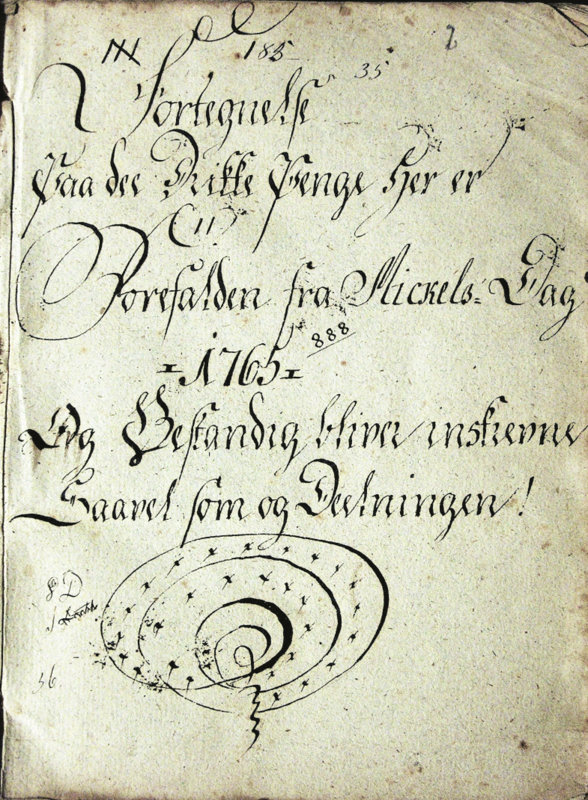 NN 185 2
35
Fortegnelse
Paa dee Drikke Penge her er
(11)
Forefalden fra Mickels=Dag
=1765=
888
Og Bestandig bliver inskrevne
Saavel som og Deelningen!
8 D
56